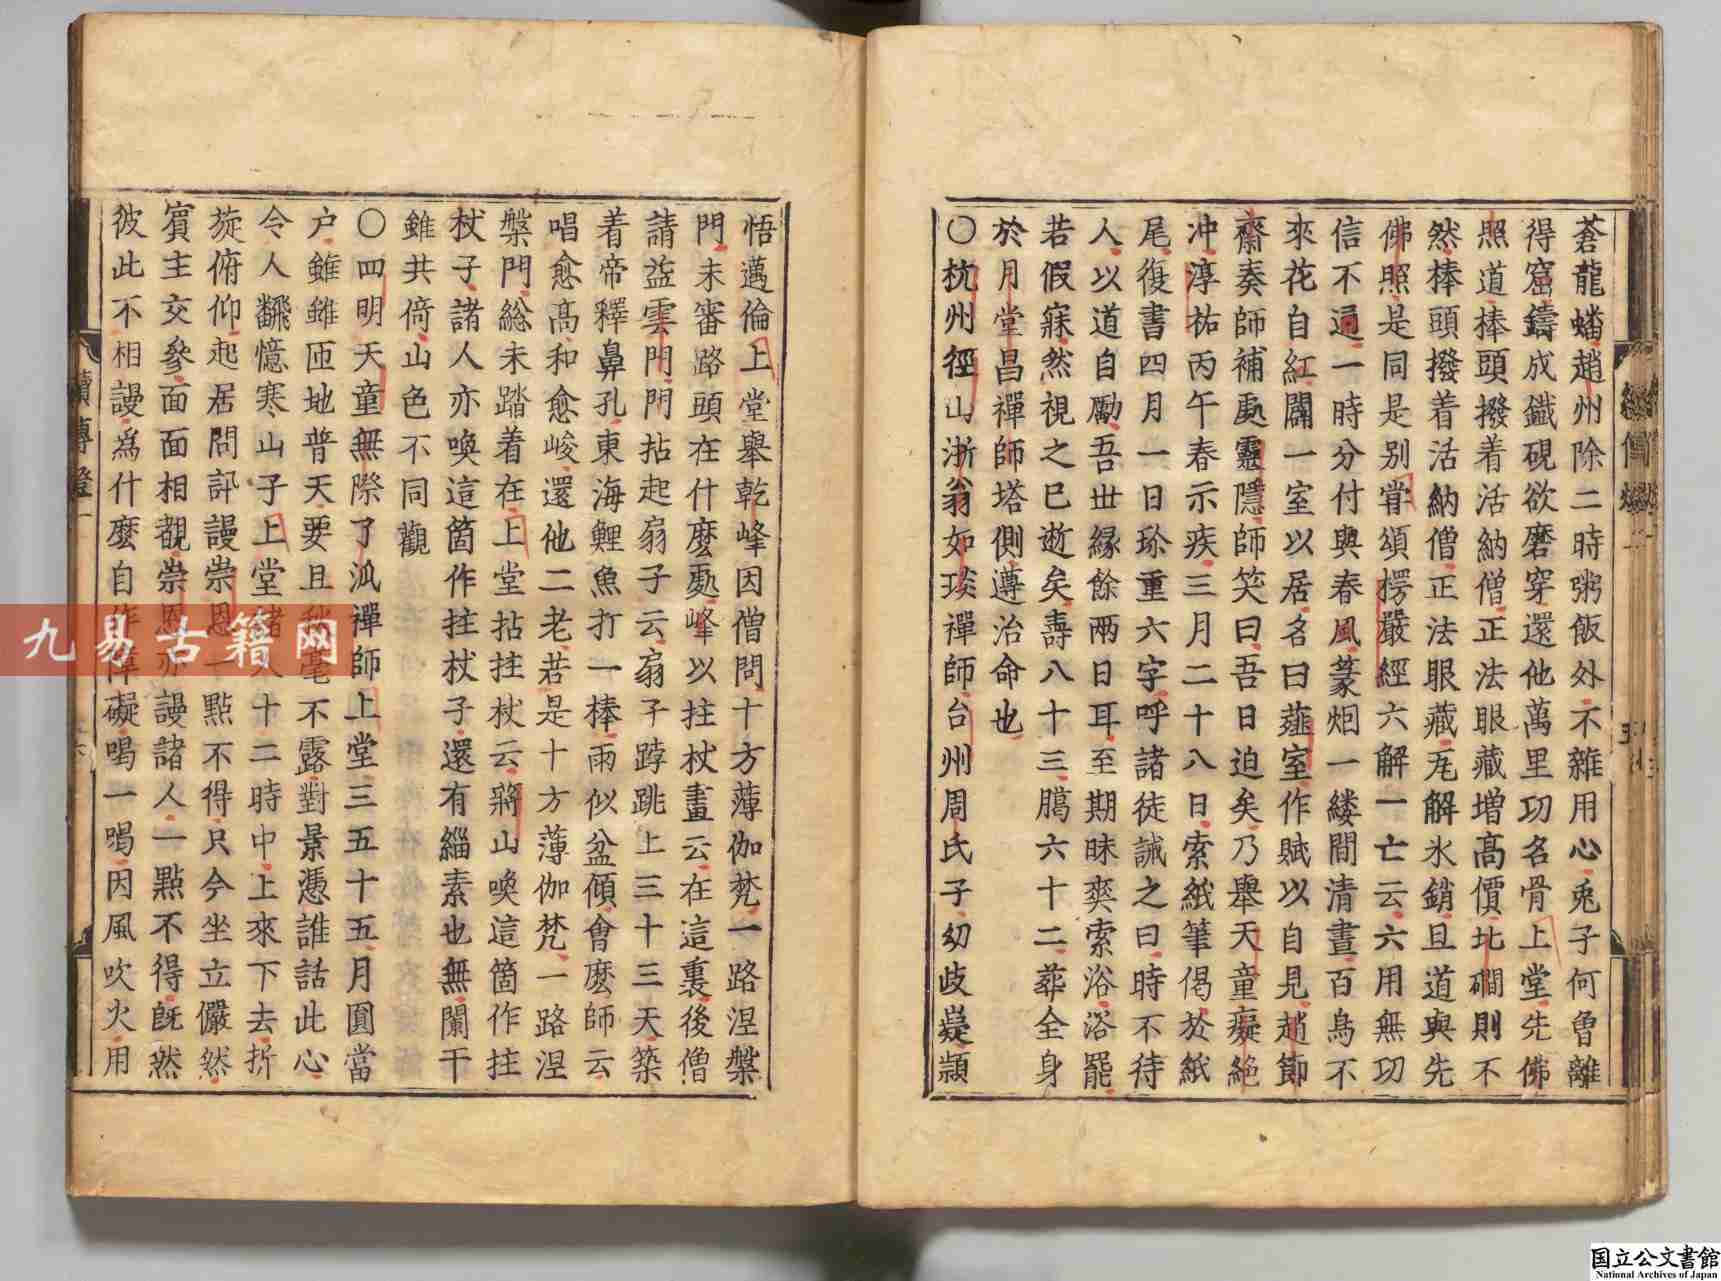 蒼龍蟠趙州除二時粥飯外不雜用心兎子何曽離
得窟鑄成鐵硯欲磨穿還他萬里功名骨上堂先佛
照道棒頭撥着活納僧正法眼藏増高價北磵則不
然棒頭撥着活納僧正法眼藏旡解氷銷且道與先
佛照是同是别甞頌楞嚴經六解一亡云六用無功
信不通一時分付與春風篆烟一縷閒清晝百鳥不
來花自紅闢一室以居名曰薤室作賦以自見趙節
齋奏師補處靈隱師笑曰吾日迫矣乃舉天童癡絶
冲淳祐丙午春示疾三月二十八日索紙筆偈於紙
尾復書四月一日珎重六字呼諸徒誡之曰時不待
人以道自勵吾丗縁餘兩日耳至期昧爽索浴浴罷
若假寐然視之巳逝矣壽八十三臈六十二葬全身
於月堂昌禪師塔側遵治命也
〇杭州徑山浙翁如琰禪師台州周氏子幼歧嶷頴
悟邁倫上堂舉乾峰因僧問十方薄伽梵一路涅槃
門未審路頭在什麽處峰以拄杖畫云在這裏後僧
請益雲門門拈起扇子云扇子𨁝跳上三十三天築
着帝釋鼻孔東海鯉魚打一棒雨似盆傾會麽師云
唱愈高和愈峻還他二老若是十方薄伽梵一路涅
槃門緫未踏着在上堂拈拄杖云蔣山喚這箇作拄
杖子諸人亦喚這箇作拄杖子還有緇素也無闌干
雖共倚山色不同觀
〇四明天童無際了泒禪師上堂三五十五月圓當
户雖雖匝地普天要且秋毫不露對景憑誰話此心
令人飜憶寒山子上堂諸人十二時中上來下去折
旋俯仰起居問訊謾崇恩一點不得只今坐立儼然
賓主交參面面相覩崇恩亦謾諸人一點不得既然
彼此不相謾爲什麽自作障礙喝一喝因風吹火用
續傳燈
九易古籍网
国立公文書館
National Archives of Japan